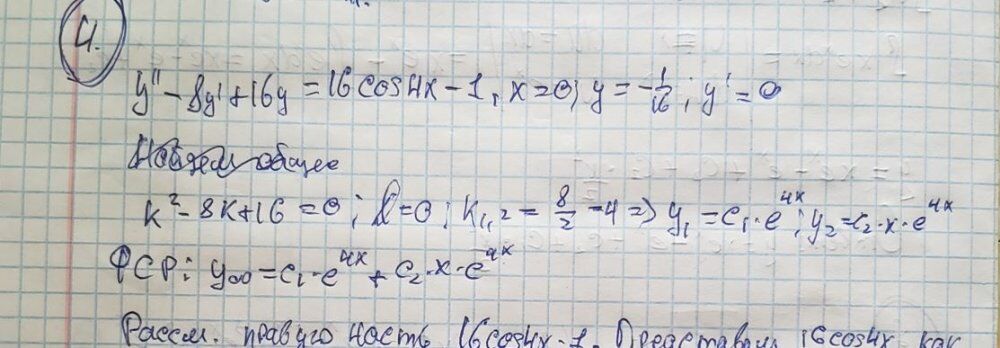 4.
y'' - 8y' + 16y = 16cos4x - 1, x=0; y = -1/16; y' = 0
Найдем общее
k² - 8k + 16 = 0; D=0; k₁,₂ = 8/2 = 4 => y₁ = c₁·e^4x; y₂ = c₂·x·e^4x
ФСР: y₀₀ = c₁·e^4x + c₂·x·e^4x
Рассм. правую часть 16cos4x - 1. Представим 16cos4x как